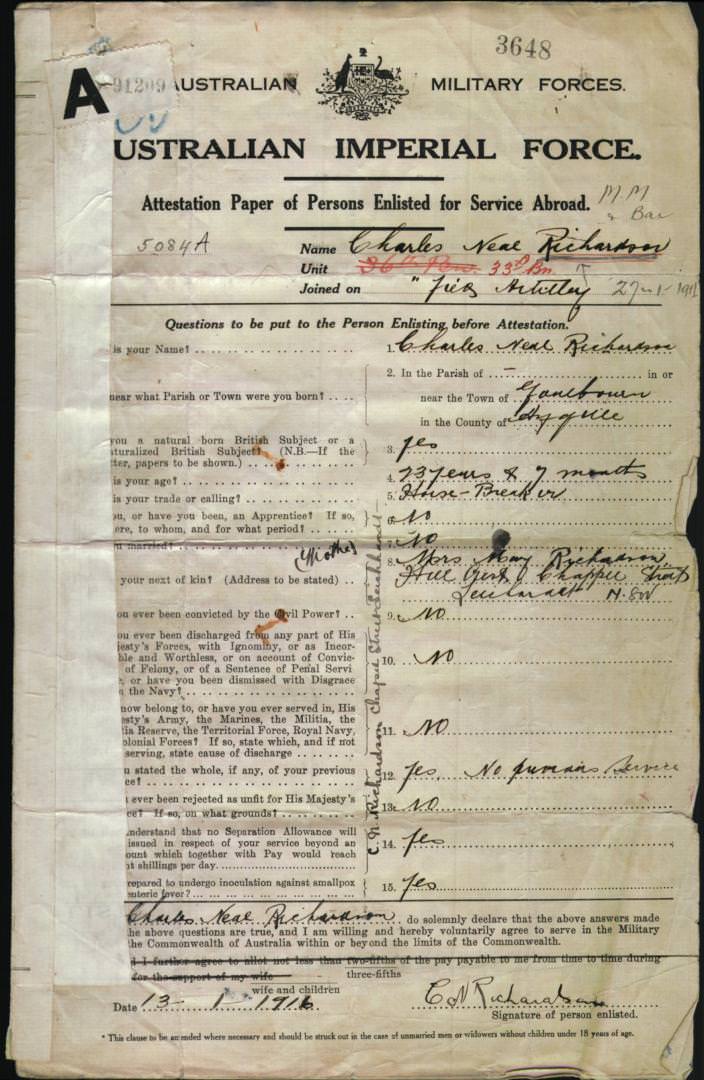 3648
A
91209
AUSTRALIAN MILITARY FORCES.
USTRALIAN IMPERIAL FORCE.
Attestation Paper of Persons Enlisted for Service Abroad.
M.M
& Bar
5084A
Name Charles Neal Richardson
Unit 36th 33rd Bn.
Joined on " Field Artillery
Questions to be put to the Person Enlisting before Attestation.
is your Name? 1. Charles Neal Richardson
2. In the Parish of – in or
near what Parish or Town were you born? near the Town of Goulbourn
in the County of Argyille
you a natural born British Subject or a
turalized British Subject? (N.B.—If the 3. Yes
ter, papers to be shown.)
is your age? 4. 23 years & 7 months
is your trade or calling? 5. Horse-Breaker
ou, or have you been, an Apprentice? If so, 6. No
ere, to whom, and for what period?
u married? No
(Mother) 8. Mrs May Richardson
your next of kin? (Address to be stated) Chappel Street
N.SW
C. N. Richardson Chapel Street Leichhardt
ou ever been convicted by the Civil Power? 9. No
ou ever been discharged from any part of His
esty's Forces, with Ignominy, or as Incor-
ble and Worthless, or on account of Convic-
of Felony, or of a Sentence of Penal Servi 10. No
e, or have you been dismissed with Disgrace
n the Navy?
now belong to, or have you ever served in, His
esty's Army, the Marines, the Militia, the
ia Reserve, the Territorial Force, Royal Navy,
olonial Forces? If so, state which, and if not 11. No
serving, state cause of discharge
u stated the whole, if any, of your previous
ce? 12. Yes, No previous Service
ever been rejected as unfit for His Majesty's
ce? If so, on what grounds? 13. No
nderstand that no Separation Allowance will
issued in respect of your service beyond an
ount which together with Pay would reach 14. Yes
ht shillings per day.
repared to undergo inoculation against smallpox
enteric fever? 15. Yes
Charles Neal Richardson do solemnly declare that the above answers made
he above questions are true, and I am willing and hereby voluntarily agree to serve in the Military
the Commonwealth of Australia within or beyond the limits of the Commonwealth.
d I further agree to allot not less than two-fifths of the pay payable to me from time to time during
for the support of my wife three-fifths
wife and children
Date 13 - 1 - 1916 C N Richardson
Signature of person enlisted.
* This clause to be amended where necessary and should be struck out in the case of unmarried men or widowers without children under 18 years of age.